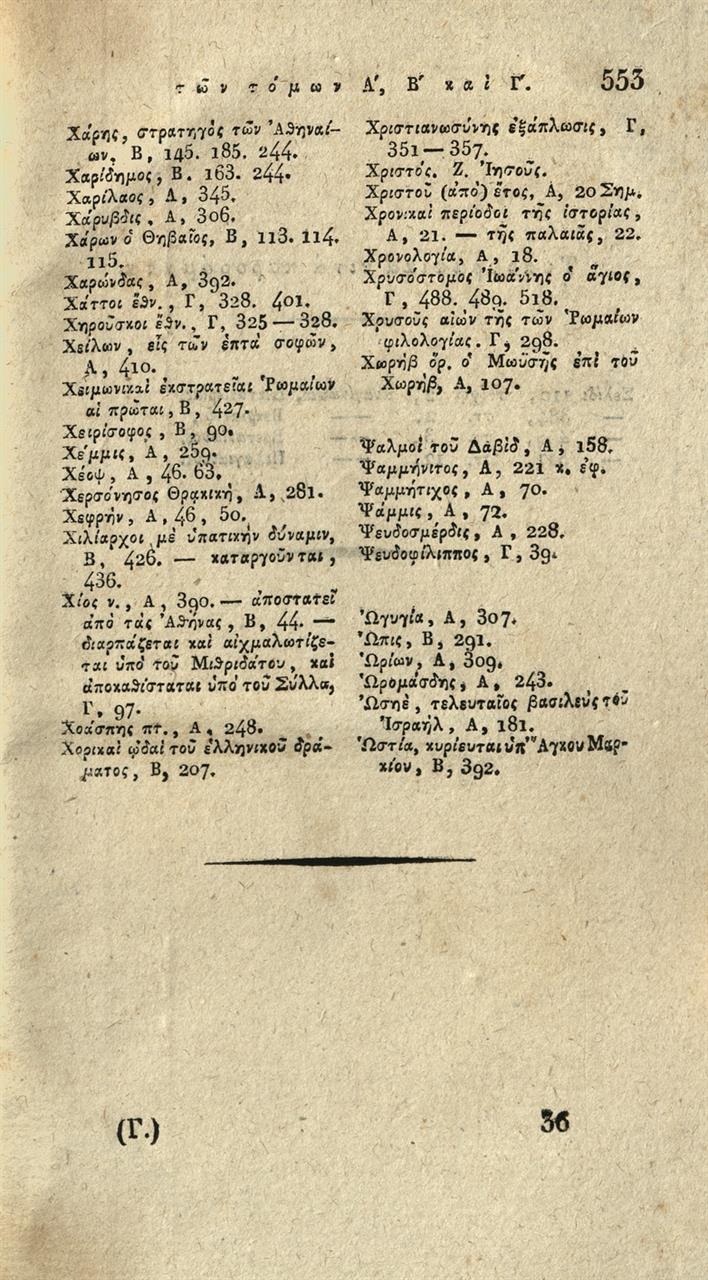 τῶν τόμων Α΄, Β΄ καὶ Γ΄. 553
Χάρης, στρατηγὸς τῶν Ἀθηναί-
ων, Β, 145. 185. 244.
Χαρίδημος, Β. 163. 244.
Χαρίλαος, Α, 345.
Χάρυβδις, Α, 306.
Χάρων ὁ Θηβαῖος, Β, 113. 114.
115.
Χαρώνδας, Α, 392.
Χάττοι ἔθν., Γ, 328. 401.
Χηροῦσκοι ἔθν., Γ, 325—328.
Χείλων, εἷς τῶν ἑπτὰ σοφῶν,
Α, 410.
Χειμωνικαὶ ἐκστρατεῖαι Ῥωμαίων
αἱ πρῶται, Β, 427.
Χειρίσοφος, Β, 90.
Χέμμις, Α, 259.
Χέοψ, Α, 46. 63.
Χερσόνησος Θρακικὴ, Α, 281.
Χεφρὴν, Α, 46, 50.
Χιλίαρχοι μὲ ὑπατικὴν δύναμιν,
Β, 426. — καταργοῦνται,
436.
Χίος ν., Α, 390. — ἀποστατεῖ
ἀπὸ τὰς Ἀθήνας, Β, 44. —
διαρπάζεται καὶ αἰχμαλωτίζε-
ται ὑπὸ τοῦ Μιθριδάτου, καὶ
ἀποκαθίσταται ὑπὸ τοῦ Σύλλα,
Γ, 97.
Χοάσπης πτ., Α, 248.
Χορικαὶ ᾠδαὶ τοῦ ἑλληνικοῦ δρά-
ματος, Β, 207.
Χριστιανωσύνης ἐξάπλωσις, Γ,
351—357.
Χριστός. Ζ. Ἰησοῦς.
Χριστοῦ (ἀπὸ) ἔτος, Α, 20 Σημ.
Χρονικαὶ περίοδοι τῆς ἱστορίας,
Α, 21. — τῆς παλαιᾶς, 22.
Χρονολογία, Α, 18.
Χρυσόστομος Ἰωάννης ὁ ἅγιος,
Γ, 488. 489. 518.
Χρυσοῦς αἰὼν τῆς τῶν Ῥωμαίων
φιλολογίας. Γ, 298.
Χωρὴβ ὄρ. ὁ Μωϋσῆς ἐπὶ τοῦ
Χωρὴβ, Α, 107.
Ψαλμοὶ τοῦ Δαβὶδ, Α, 158.
Ψαμμήνιτος, Α, 221 κ. ἐφ.
Ψαμμήτιχος, Α, 70.
Ψάμμις, Α, 72.
Ψευδοσμέρδις, Α, 228.
Ψευδοφίλιππος, Γ, 39.
Ὠγυγία, Α, 307.
Ὦπις, Β, 291.
Ὠρίων, Α, 309.
Ὠρομάσδης, Α, 243.
Ὠσηὲ, τελευταῖος βασιλεὺς τοῦ
Ἰσραὴλ, Α, 181.
Ὠστία, κυρίευται ὑπ' Ἄγκου Μαρ-
κίου, Β, 392.
(Γ.) 36